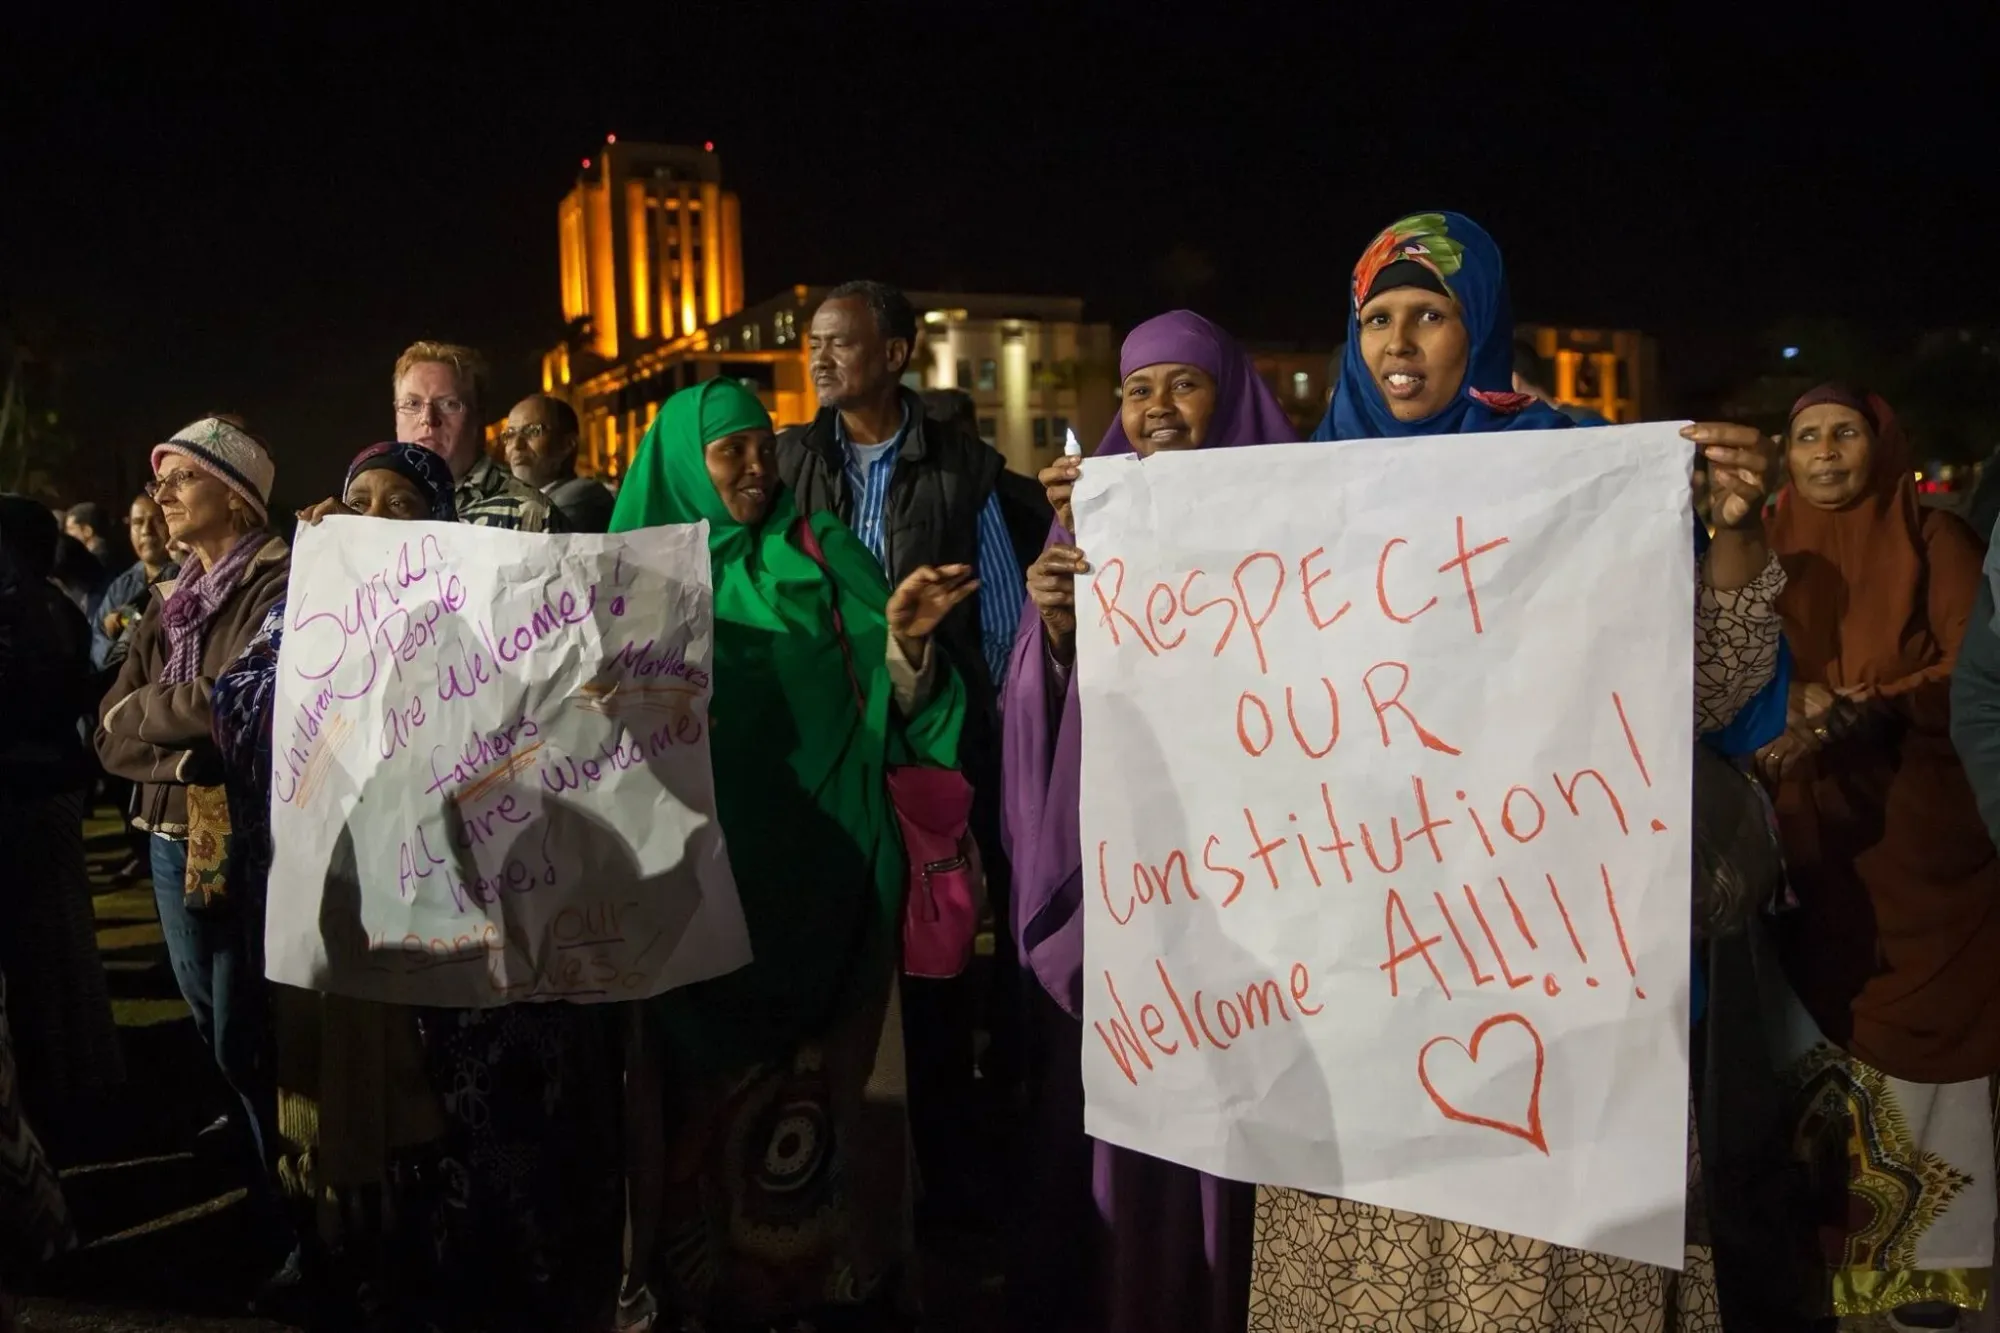 Syrian
People
are welcome!
children
fathers
Mothers
ALL are welcome
here!
our
Lives!
Respect
OUR
Constitution!
Welcome ALL!!!